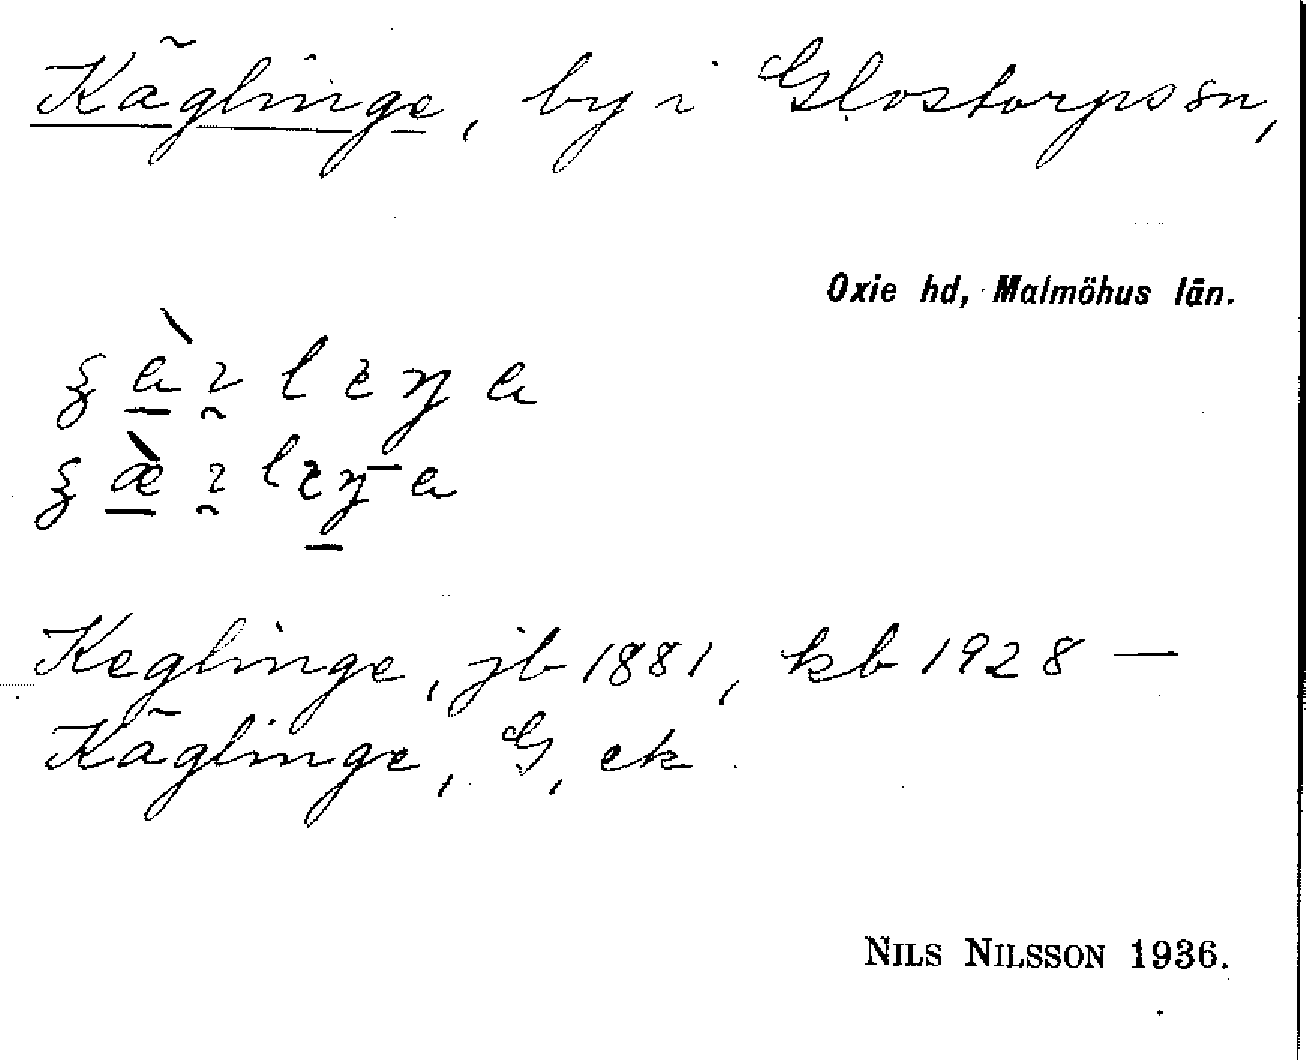 Käglinge, by i Glostorps sn,
Oxie hd, Malmöhus län.
Keglinge, jb 1881, kb 1928 —
Käglinge, G, ek.
NILS NILSSON 1936.